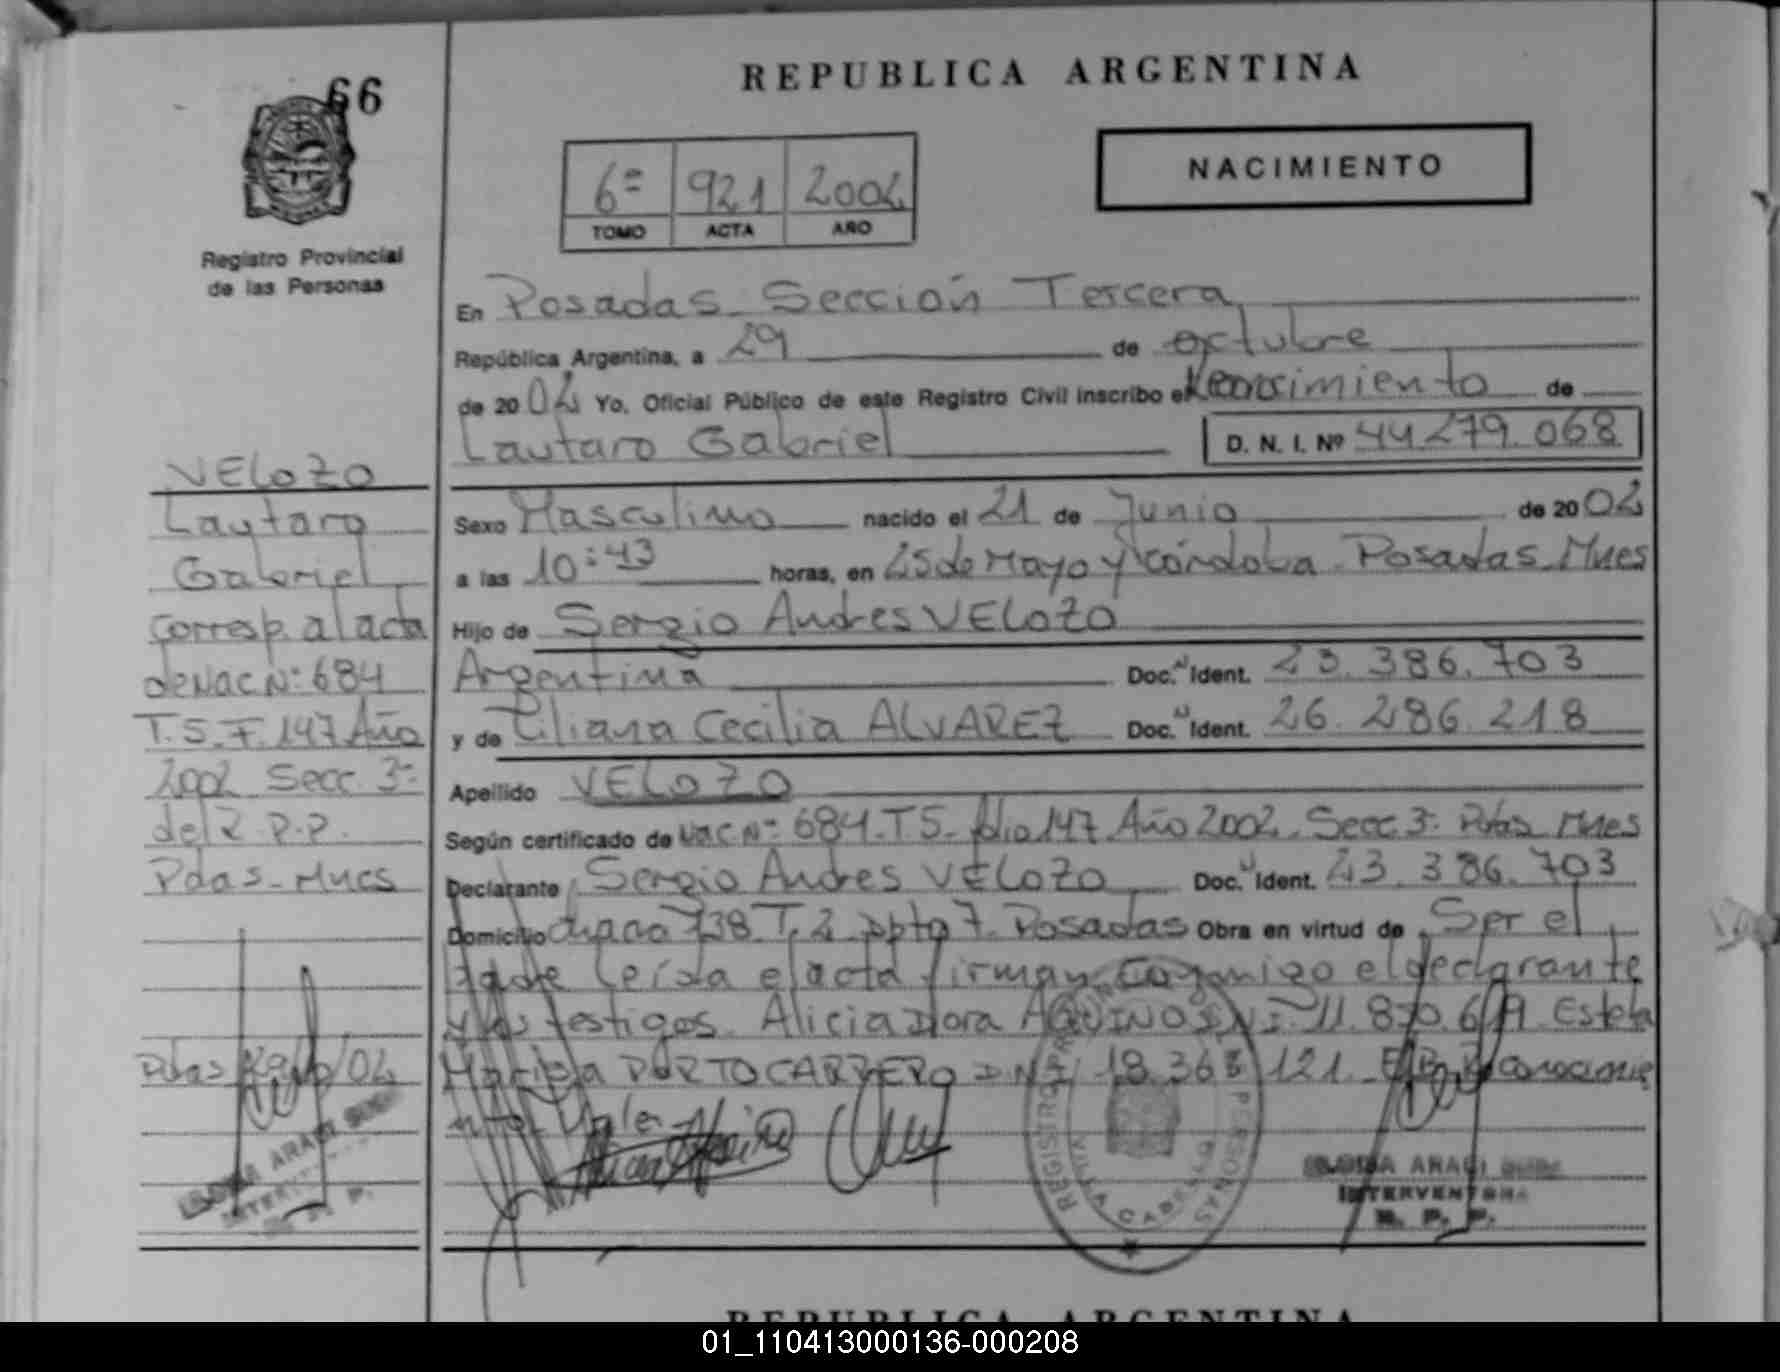 REPUBLICA ARGENTINA
66
NACIMIENTO
6ª 921 2002
TOMO ACTA AÑO
Registro Provincial
de las Personas
En Posadas Sección Tercera
República Argentina, a 29 de octubre
de 2002 Yo, Oficial Público de este Registro Civil inscribo el Reconocimiento de
Lautaro Gabriel D. N. I. Nº 44279.068
Sexo Masculino nacido el 21 de Junio de 2002
a las 10:43 horas, en 25 de Mayo y Córdoba Posadas Mnes
Hijo de Sergio Andres VELOZO
Argentina Doc. N Ident. 23.386.703
y de Liliana Cecilia ALVAREZ Doc. N Ident. 26.286.218
Apellido VELOZO
Según certificado de Nac Nº 684. T 5. folio 147 Año 2002. Secc 3ª Pdas Mnes
Declarante Sergio Andres VELOZO Doc. N Ident. 23.386.703
Domicilio chacra 138 T. 2 Dpto 7. Posadas Obra en virtud de Ser el
Padre Leída el acta firman conmigo el declarante
y los testigos. Alicia Dora AQUINO DNI. 11.870.619 Estela
PORTOCARRERO DNI 18.363.121. Reconocimie
nto. Vale
VELOZO
Lautaro
Gabriel
corresp. al acta
de Nac Nº: 684
T. 5. F. 147 Año
2002 Secc. 3ª
del R.P.P.
Pdas-Mnes
Pdas /02
ARACI
INTERVENTORA
R. P. P.
REGISTRO PROVINCIAL DE LAS PERSONAS
VILLA CABELLO
ARACI
INTERVENTORA
R. P. P.
REPUBLICA ARGENTINA
01_110413000136-000208